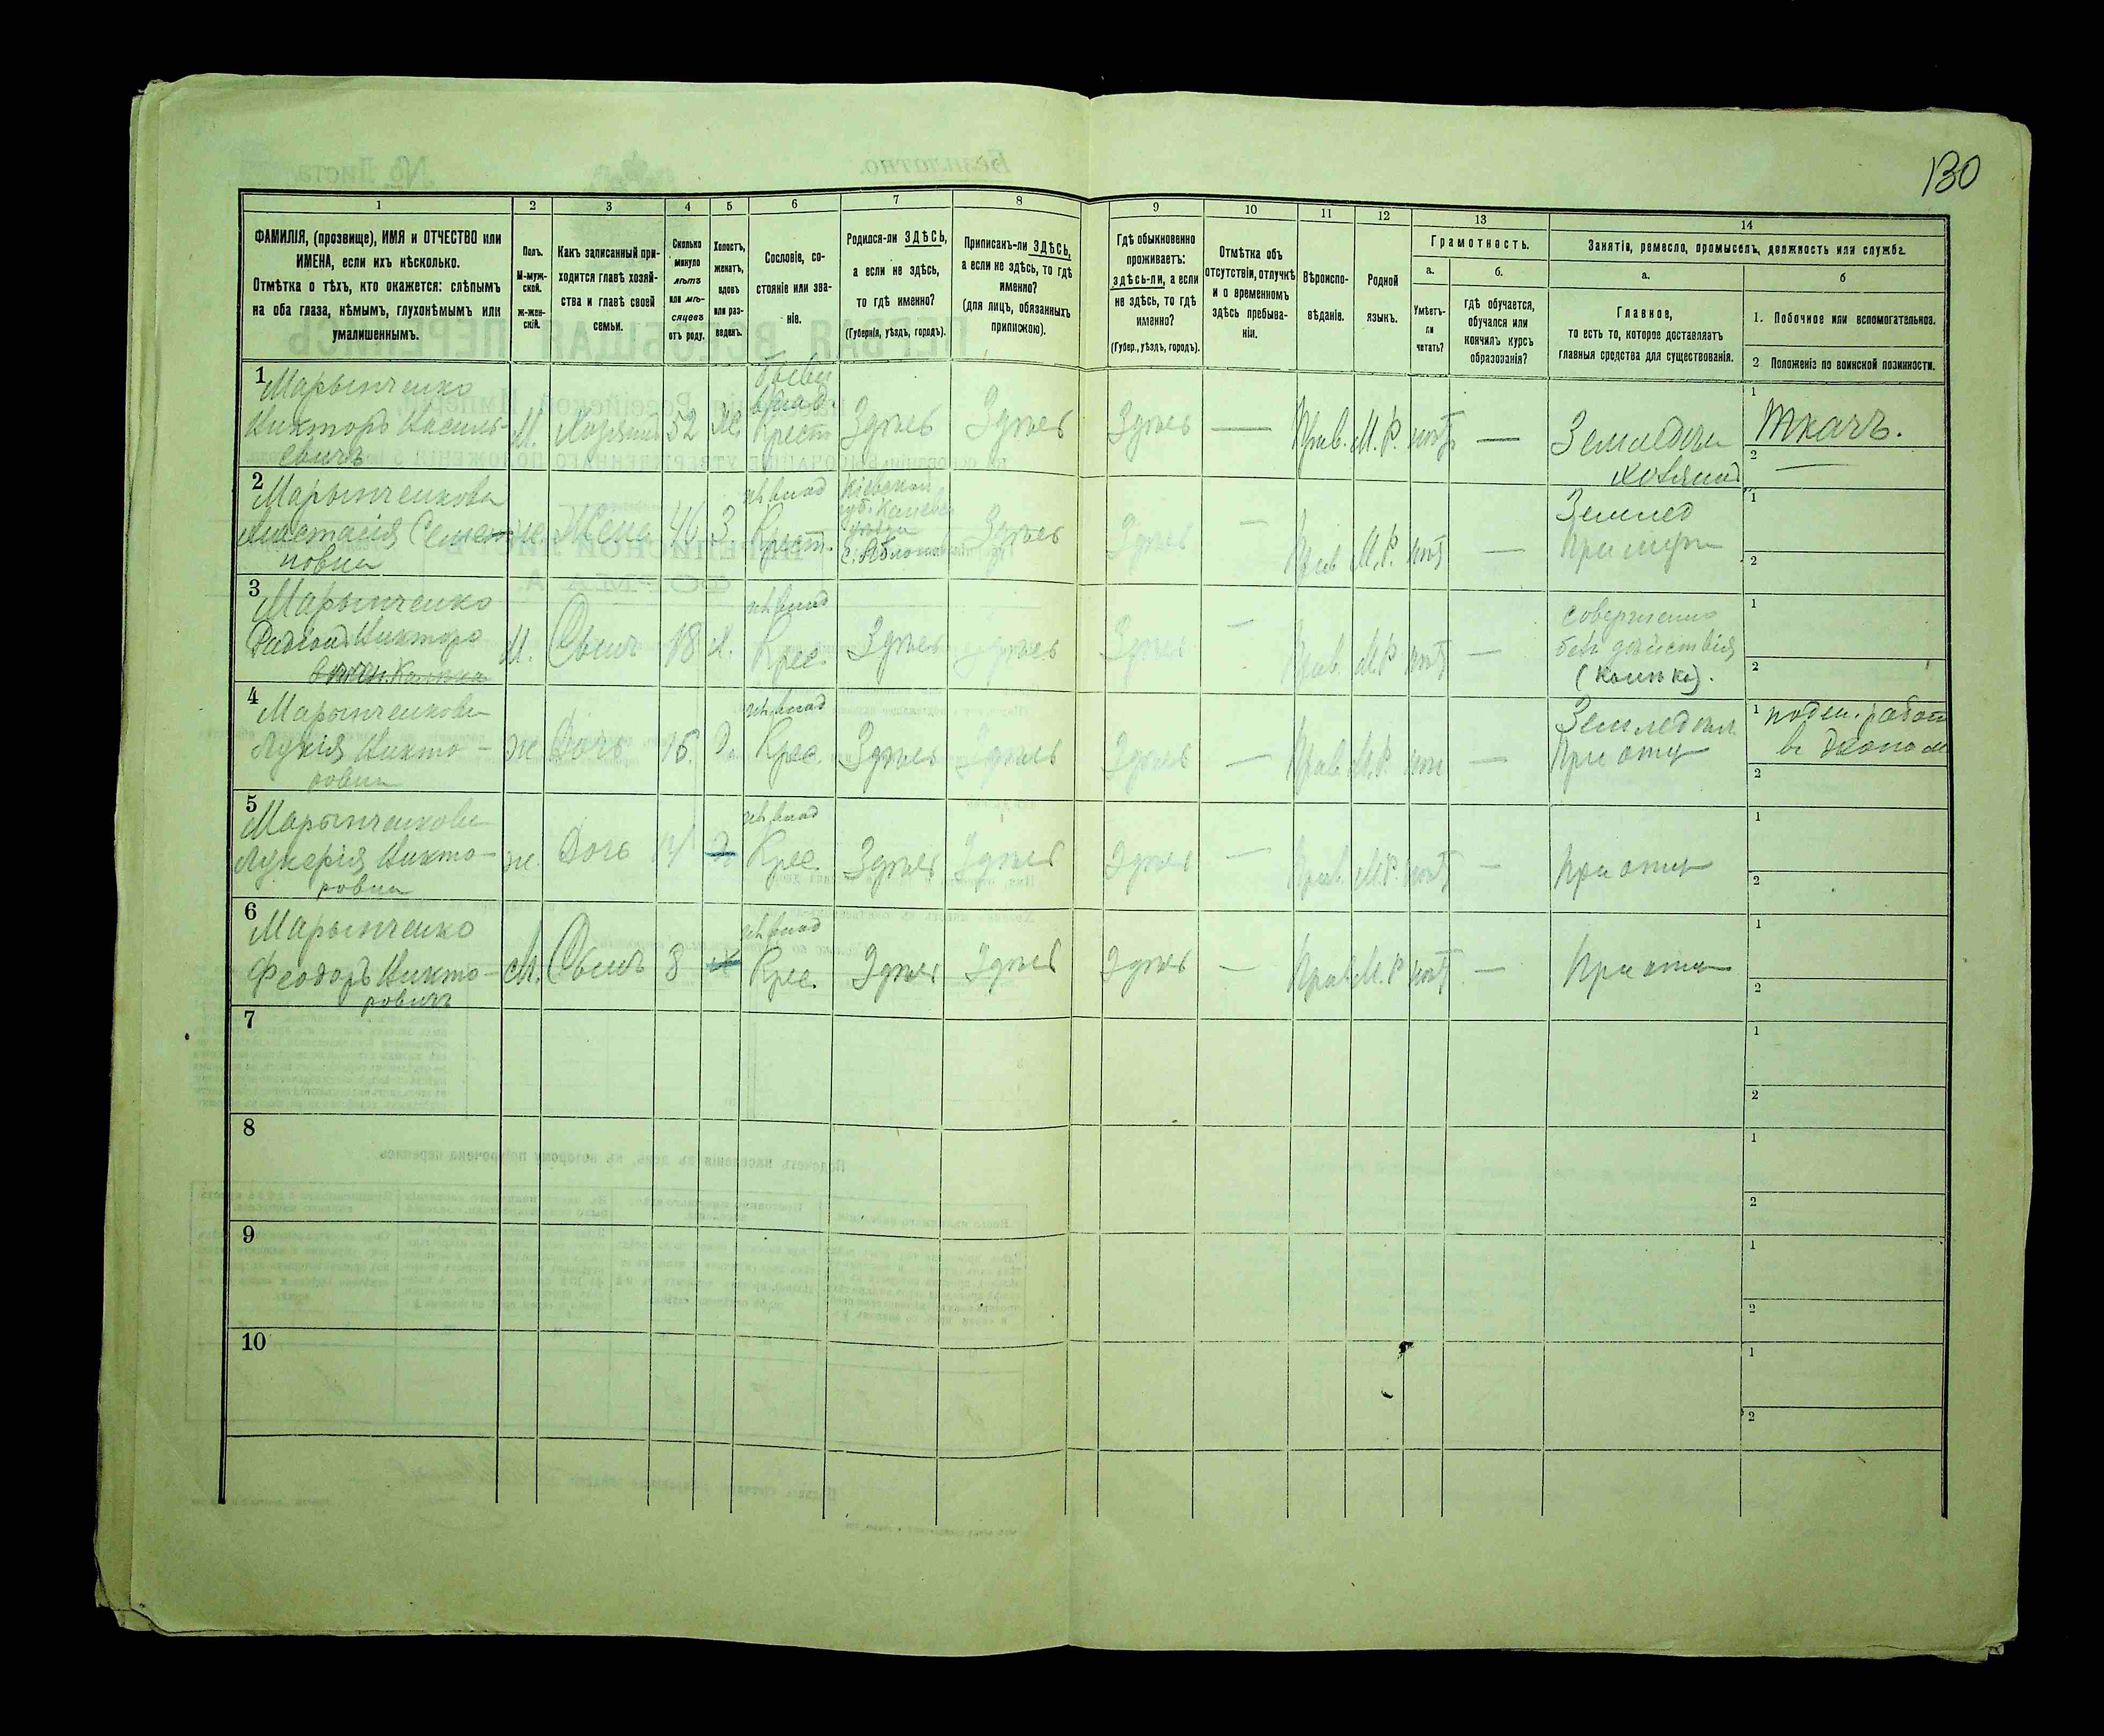 130
1 2 3 4 5 6 7 8 9 10 11 12 13 14
ФАМИЛІЯ, (прозвище), ИМЯ и ОТЧЕСТВО или
ИМЕНА, если ихъ нѣсколько.
Отмѣтка о тѣхъ, кто окажется: слѣпымъ
на оба глаза, нѣмымъ, глухонѣмымъ или
умалишеннымъ.
Полъ.
М-муж-
ской.
ж-жен-
скій.
Какъ записанный при-
ходится главѣ хозяй-
ства и главѣ своей
семьи.
Сколько
минуло
лѣтъ
или мѣ-
сяцевъ
отъ роду.
Холостъ,
женатъ,
вдовъ
или раз-
веденъ.
Сословіе, со-
стояніе или зва-
ніе.
Родился-ли ЗДѢСЬ,
а если не здѣсь,
то гдѣ именно?
(Губернія, уѣздъ, городъ).
Приписанъ-ли ЗДѢСЬ,
а если не здѣсь, то гдѣ
именно?
(для лицъ, обязанныхъ
припискою).
Гдѣ обыкновенно
проживаетъ:
здѣсь-ли, а если
не здѣсь, то гдѣ
именно?
(Губер., уѣздъ, городъ).
Отмѣтка объ
отсутствіи, отлучкѣ
и о временномъ
здѣсь пребыва-
ніи.
Вѣроиспо-
вѣданіе.
Родной
языкъ.
Грамотность.
а.
Умѣетъ-
ли
читать?
б.
гдѣ обучается,
обучался или
кончилъ курсъ
образованія?
Занятіе, ремесло, промыселъ, должность или служба.
а.
Главное,
то есть то, которое доставляетъ
главныя средства для существованія.
б
1. Побочное или вспомогательное.
2 Положеніе по воинской повинности.
1
Марынченко
Викторъ Василь-
евичъ
М. Хозяинъ 52 Ж. Крест Здѣсь Здѣсь Здѣсь — Прав. М.Р. нѣтъ —
хозяинъ
1 Ткачъ.
2 —
2
Марынченкова
Анастасія
ж. Жена 46 З. Крест.
Кіевской
губ. Каневс
уѣзда
Здѣсь Здѣсь — Прав М.Р. нѣтъ —
Землед
При мужѣ
1
2
3
Марынченко
М. Сынъ 18 Х. Крес. Здѣсь Здѣсь Здѣсь — Прав. М.Р нѣтъ —
совершенно
безъ дѣйствія
(калѣка).
1
2
4
Марынченкова
Лукія Викто-
ровна
ж Дочь 16. Д. Крес. Здѣсь Здѣсь Здѣсь — Прав. М.Р. нѣт —
При отцѣ
1 поден. работ
въ эконом
2
5
Марынченкова
Лукерія Викто-
ровна
ж. Дочь Крес. Здѣсь Здѣсь Здѣсь — Прав. М.Р. нѣтъ — При отцѣ
1
2
6
Марынченко
Феодоръ Викто-
ровичъ
М. Сынъ 8 Крес. Здѣсь Здѣсь Здѣсь — Прав М.Р нѣтъ — При отцѣ
1
2
7
1
2
8
1
2
9
1
2
10
1
2